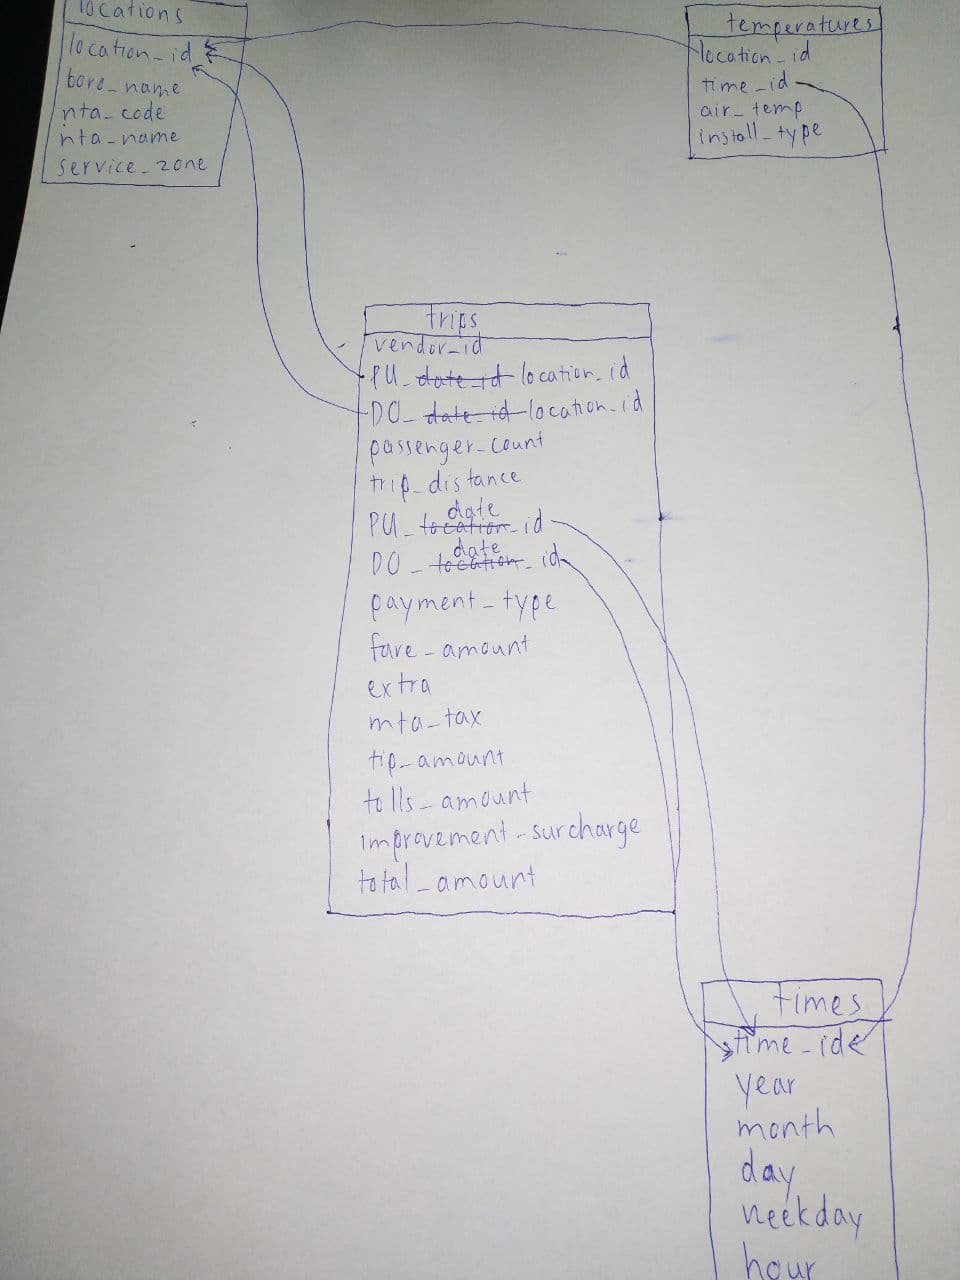 locations
location_id
boro_name
nta_code
nta_name
service_zone
temperatures
location_id
time_id
air_temp
install_type
trips
vendor_id
PU_ date_id location_id
DO_ date_id location_id
passenger_count
trip_distance
PU_ location date _id
DO_ location date _id
payment_type
fare_amount
extra
mta_tax
tip_amount
tolls_amount
improvement_surcharge
total_amount
times
time_id
year
month
day
weekday
hour